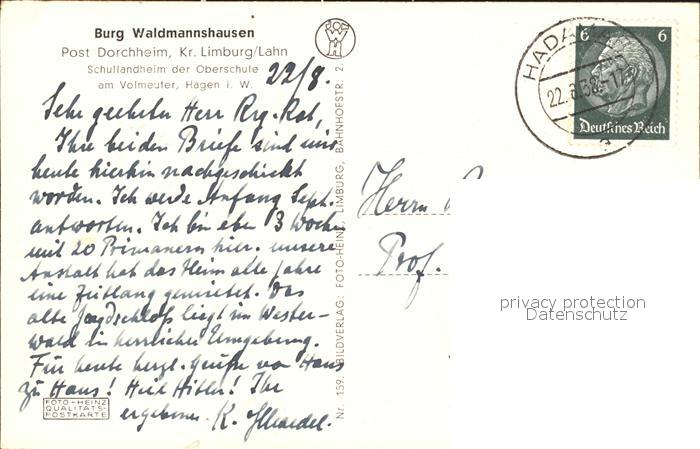 Burg Waldmannshausen
Post Dorchheim, Kr. Limburg/Lahn
Schullandheim der Oberschule
am Volmeufer, Hagen i. W.
22/8.
Sehr geehrter Herr Reg.-Rat,
Ihre beiden Briefe sind mir
heute hierhin nachgeschickt
worden. Ich werde Anfang Sept.
antworten. Ich bin eben 3 Wochen
mit 20 Primanern hier. Unsere
Anstalt hat das Heim alle Jahre
eine Zeitlang gemietet. Das
alte Jagdschloß liegt im Wester-
wald in herrlicher Umgebung.
Für heute herzl. Grüße von Haus
zu Haus! Heil Hitler! Ihr
ergebener K.
FOTO-HEINZ
QUALITÄTS-
POSTKARTE
Nr. 159. BILDVERLAG: FOTO-HEINZ, LIMBURG, BAHNHOFSTR. 2.
HADAMAR
22.8.38
a
6 6
Deutsches Reich
Herrn
Prof.
privacy protection
Datenschutz